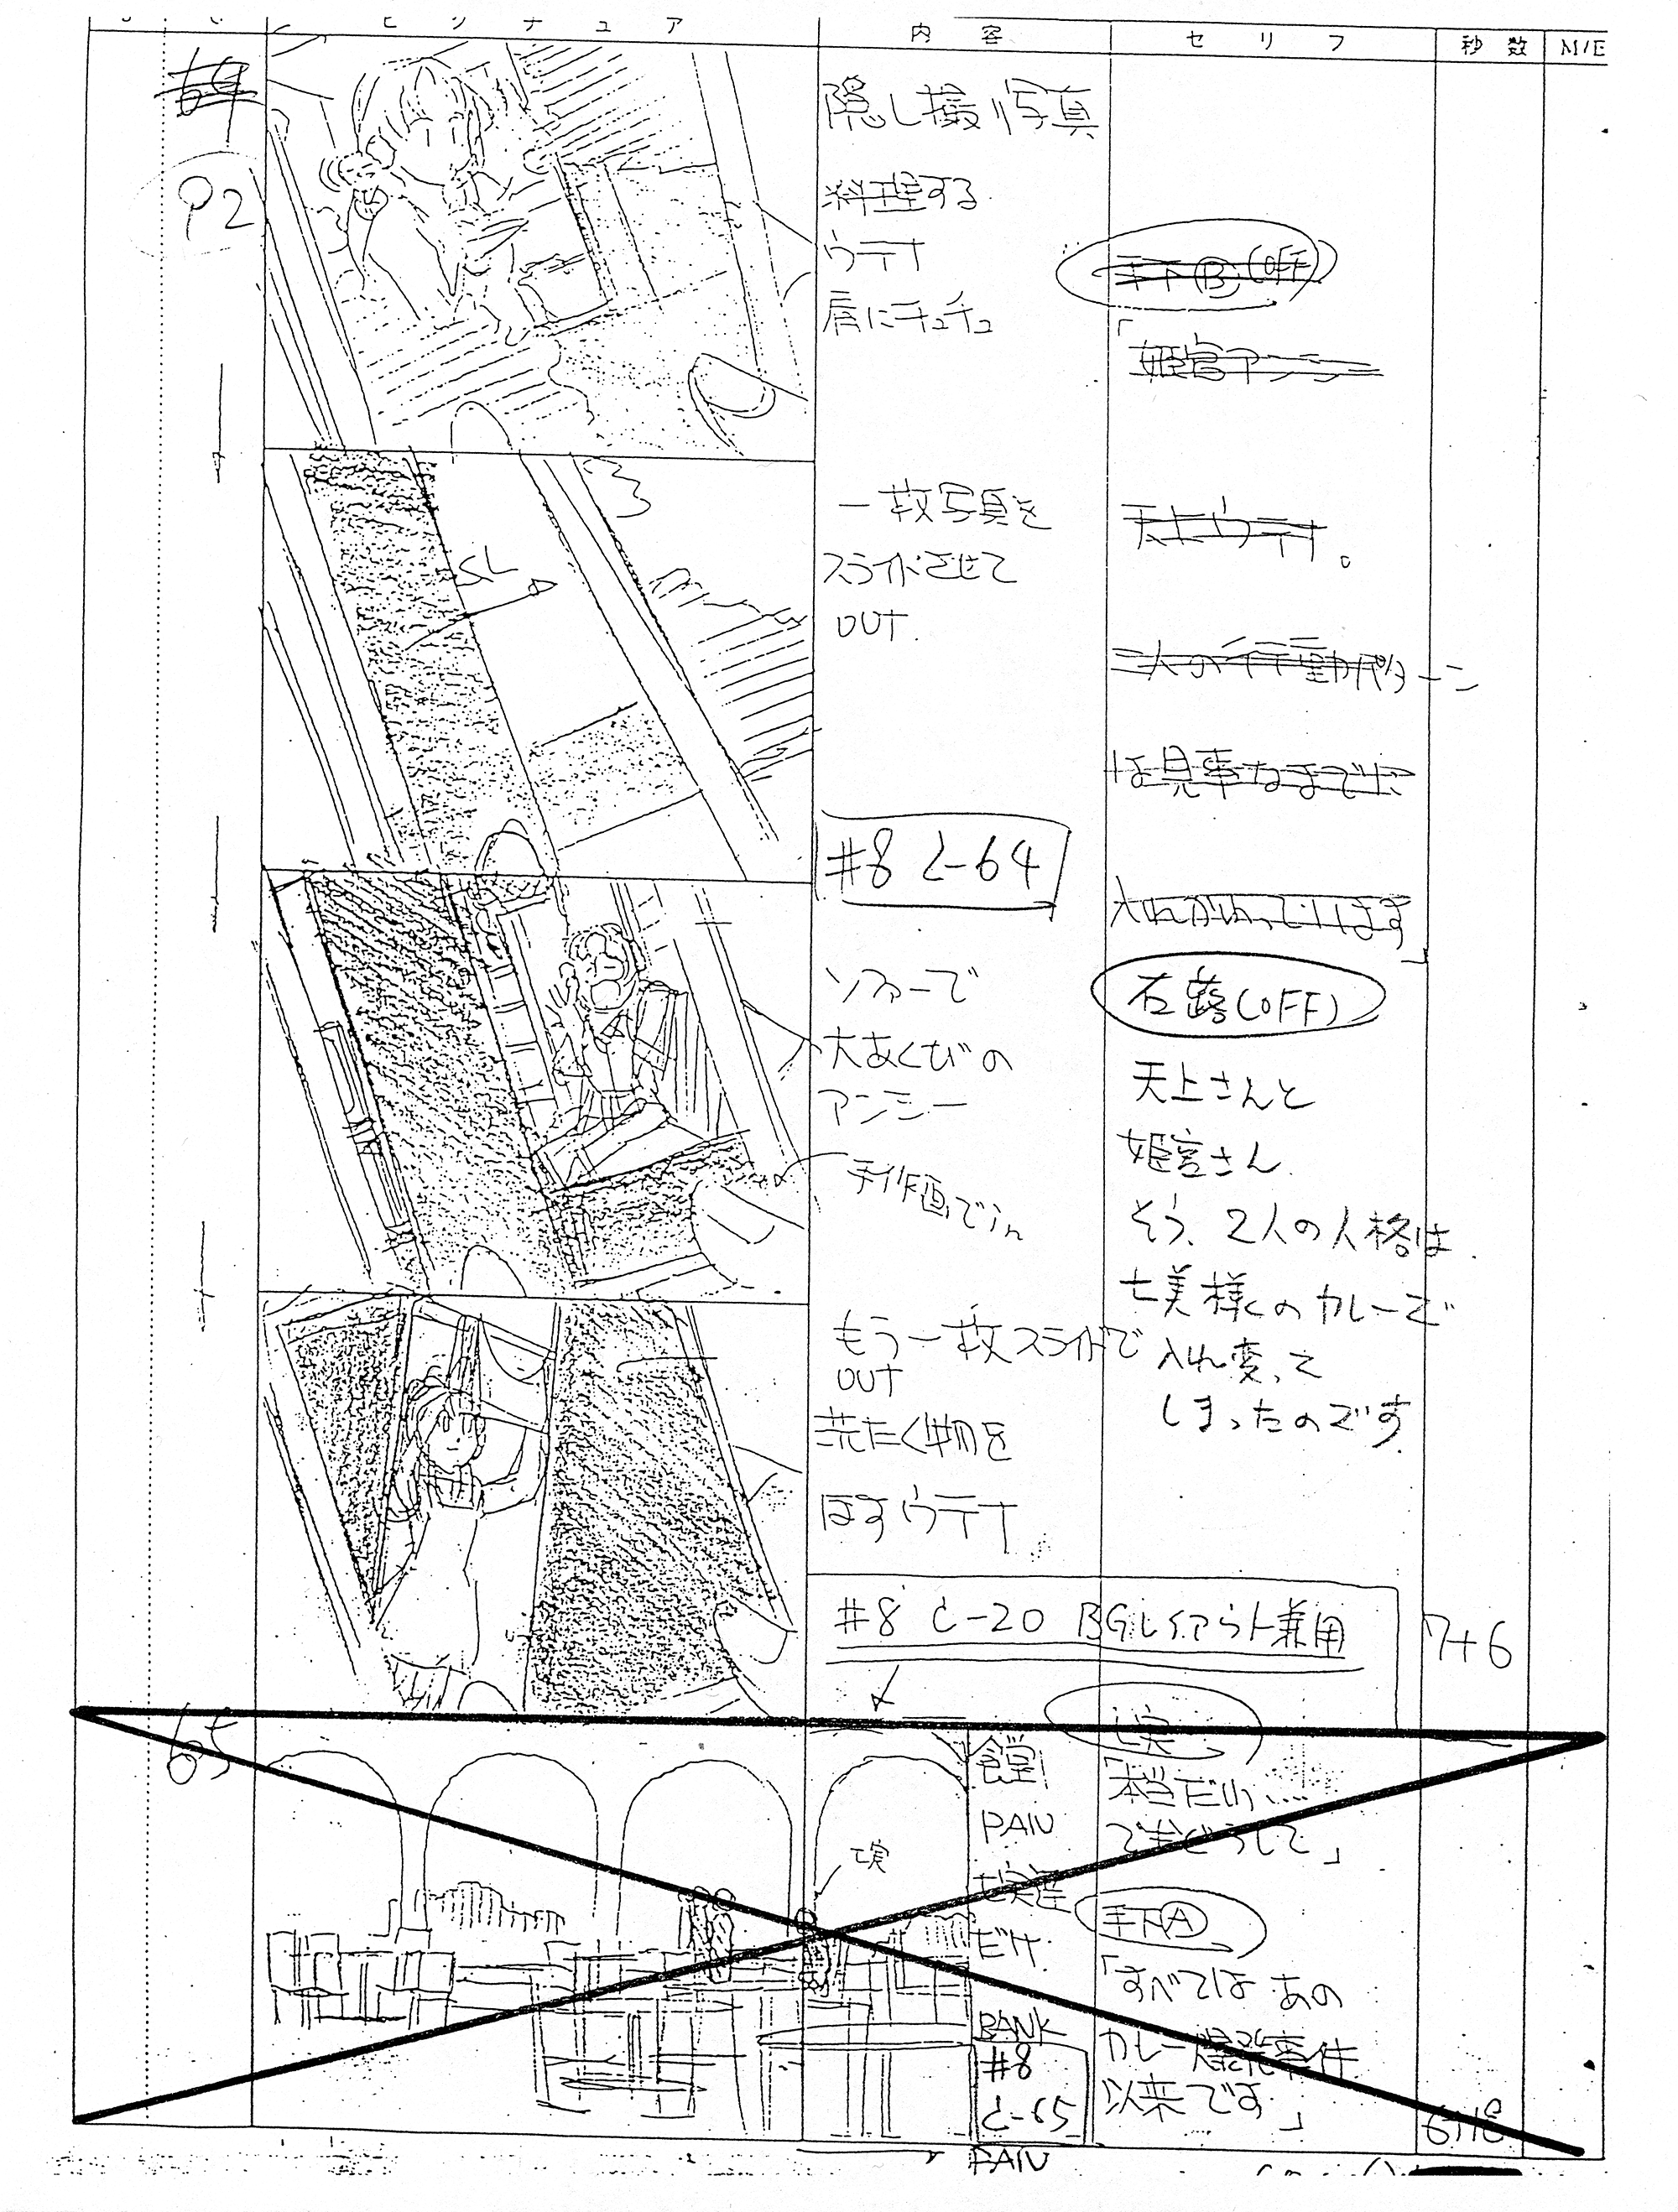 ピクチュア 内容 セリフ 秒数 M/E
64
P2
隠し撮り写真
料理する
ウテナ
肩にチュチュ
手下Ⓑ(OFF)
「姫宮アンシー
一枚写真を
スライドさせて
OUT.
SL
天上ウテナ。
二人の行動パターン
は見事なまでに
入れかわっています」
#8 C-64
ソファーで
大あくびの
アンシー
手作画でin
石蕗(OFF)
天上さんと
姫宮さん
そう、2人の人格は
七実様のカレーで
入れ変って
しまったのです
もう一枚スライドで
OUT
洗たく物を
ほすウテナ
#8 C-20 BGレイアウト兼用
7+6
65
食堂
PAN
七実達
ビケ
七実
七実
「本当だわ....
でもどうして」
手下Ⓐ
「すべては あの
カレー爆発事件
以来です」
BANK
#8
C-65
6+18
PAN